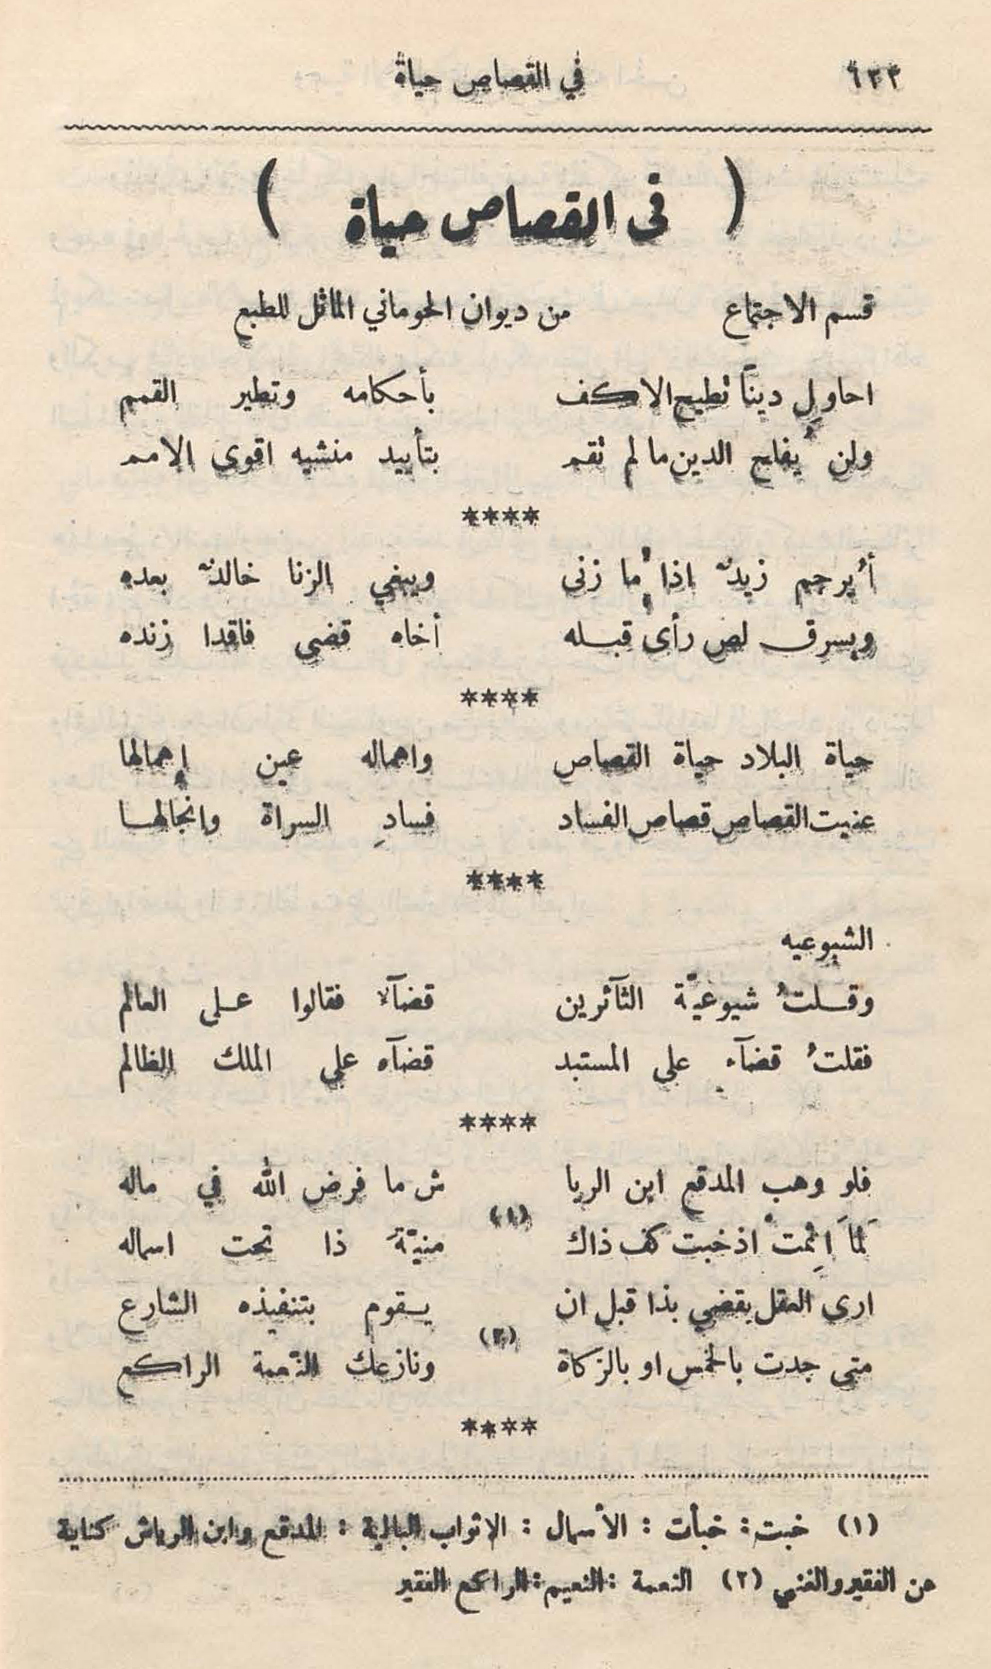 ٦٣٣ في القصاص حياة
( في القصاص حياة )
قسم الاجتماع من ديوان الحوماني الماثل للطبع
احاول دينًا تطيح الاكف بأحكامه وتطير القمم
ولن يفلح الدين ما لم تقم بتأييد منشيه اقوى الامم
****
أيُرجم زيدٌ اذا ما زنى ويبغي الزنا خالدٌ بعده
ويسرق لص رأى قبله أخاه قضى فاقدا زنده
****
حياة البلاد حياة القصاص واهماله عين إهمالها
عنيت القصاص قصاص الفساد فسادِ السراة وانجالها
****
الشيوعيه
وقلتُ شيوعيّة الثآئرين قضآء فقالوا على العالم
فقلتُ قضآء على المستبد قضآء على الملك الظالم
****
فلو وهب المدقع ابن الريا ش ما فرض الله في ماله
لمَا اثِمتْ اذ خبت كف ذاك (١) منيّةَ ذا تحت اسماله
ارى العقل يقضي بذا قبل ان يقوم بتنفيذه الشارع
متى جدت بالخمس او بالزكاة (٢) ونازعك النّعمة الراكع
****
(١) خبت : خبأت : الأسمال : الاثواب البالية : المدقع وابن الرياش كناية
عن الفقير والغني (٢) النعمة : النعيم : الراكع الفقير